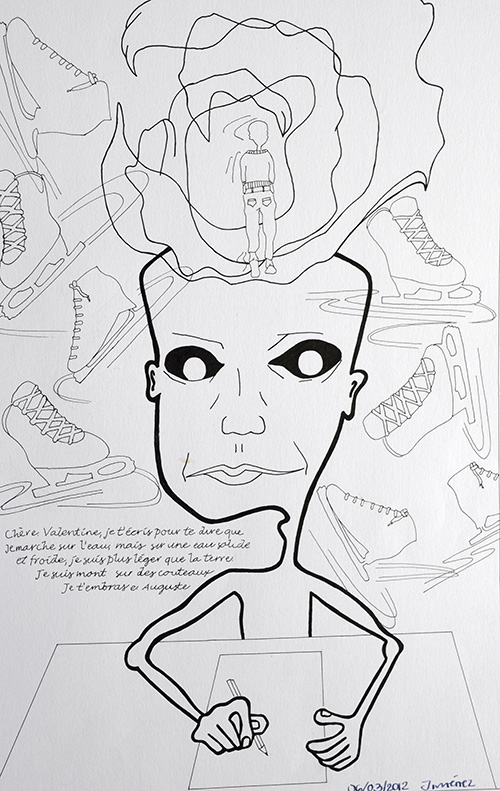 Chère Valentine, je t'écris pour te dire que
je marche sur l'eau, mais sur une eau solide
et froide, je suis plus léger que la terre.
Je suis mont sur des couteaux
Je t'embras e Auguste
06/03/2012 Jiménez